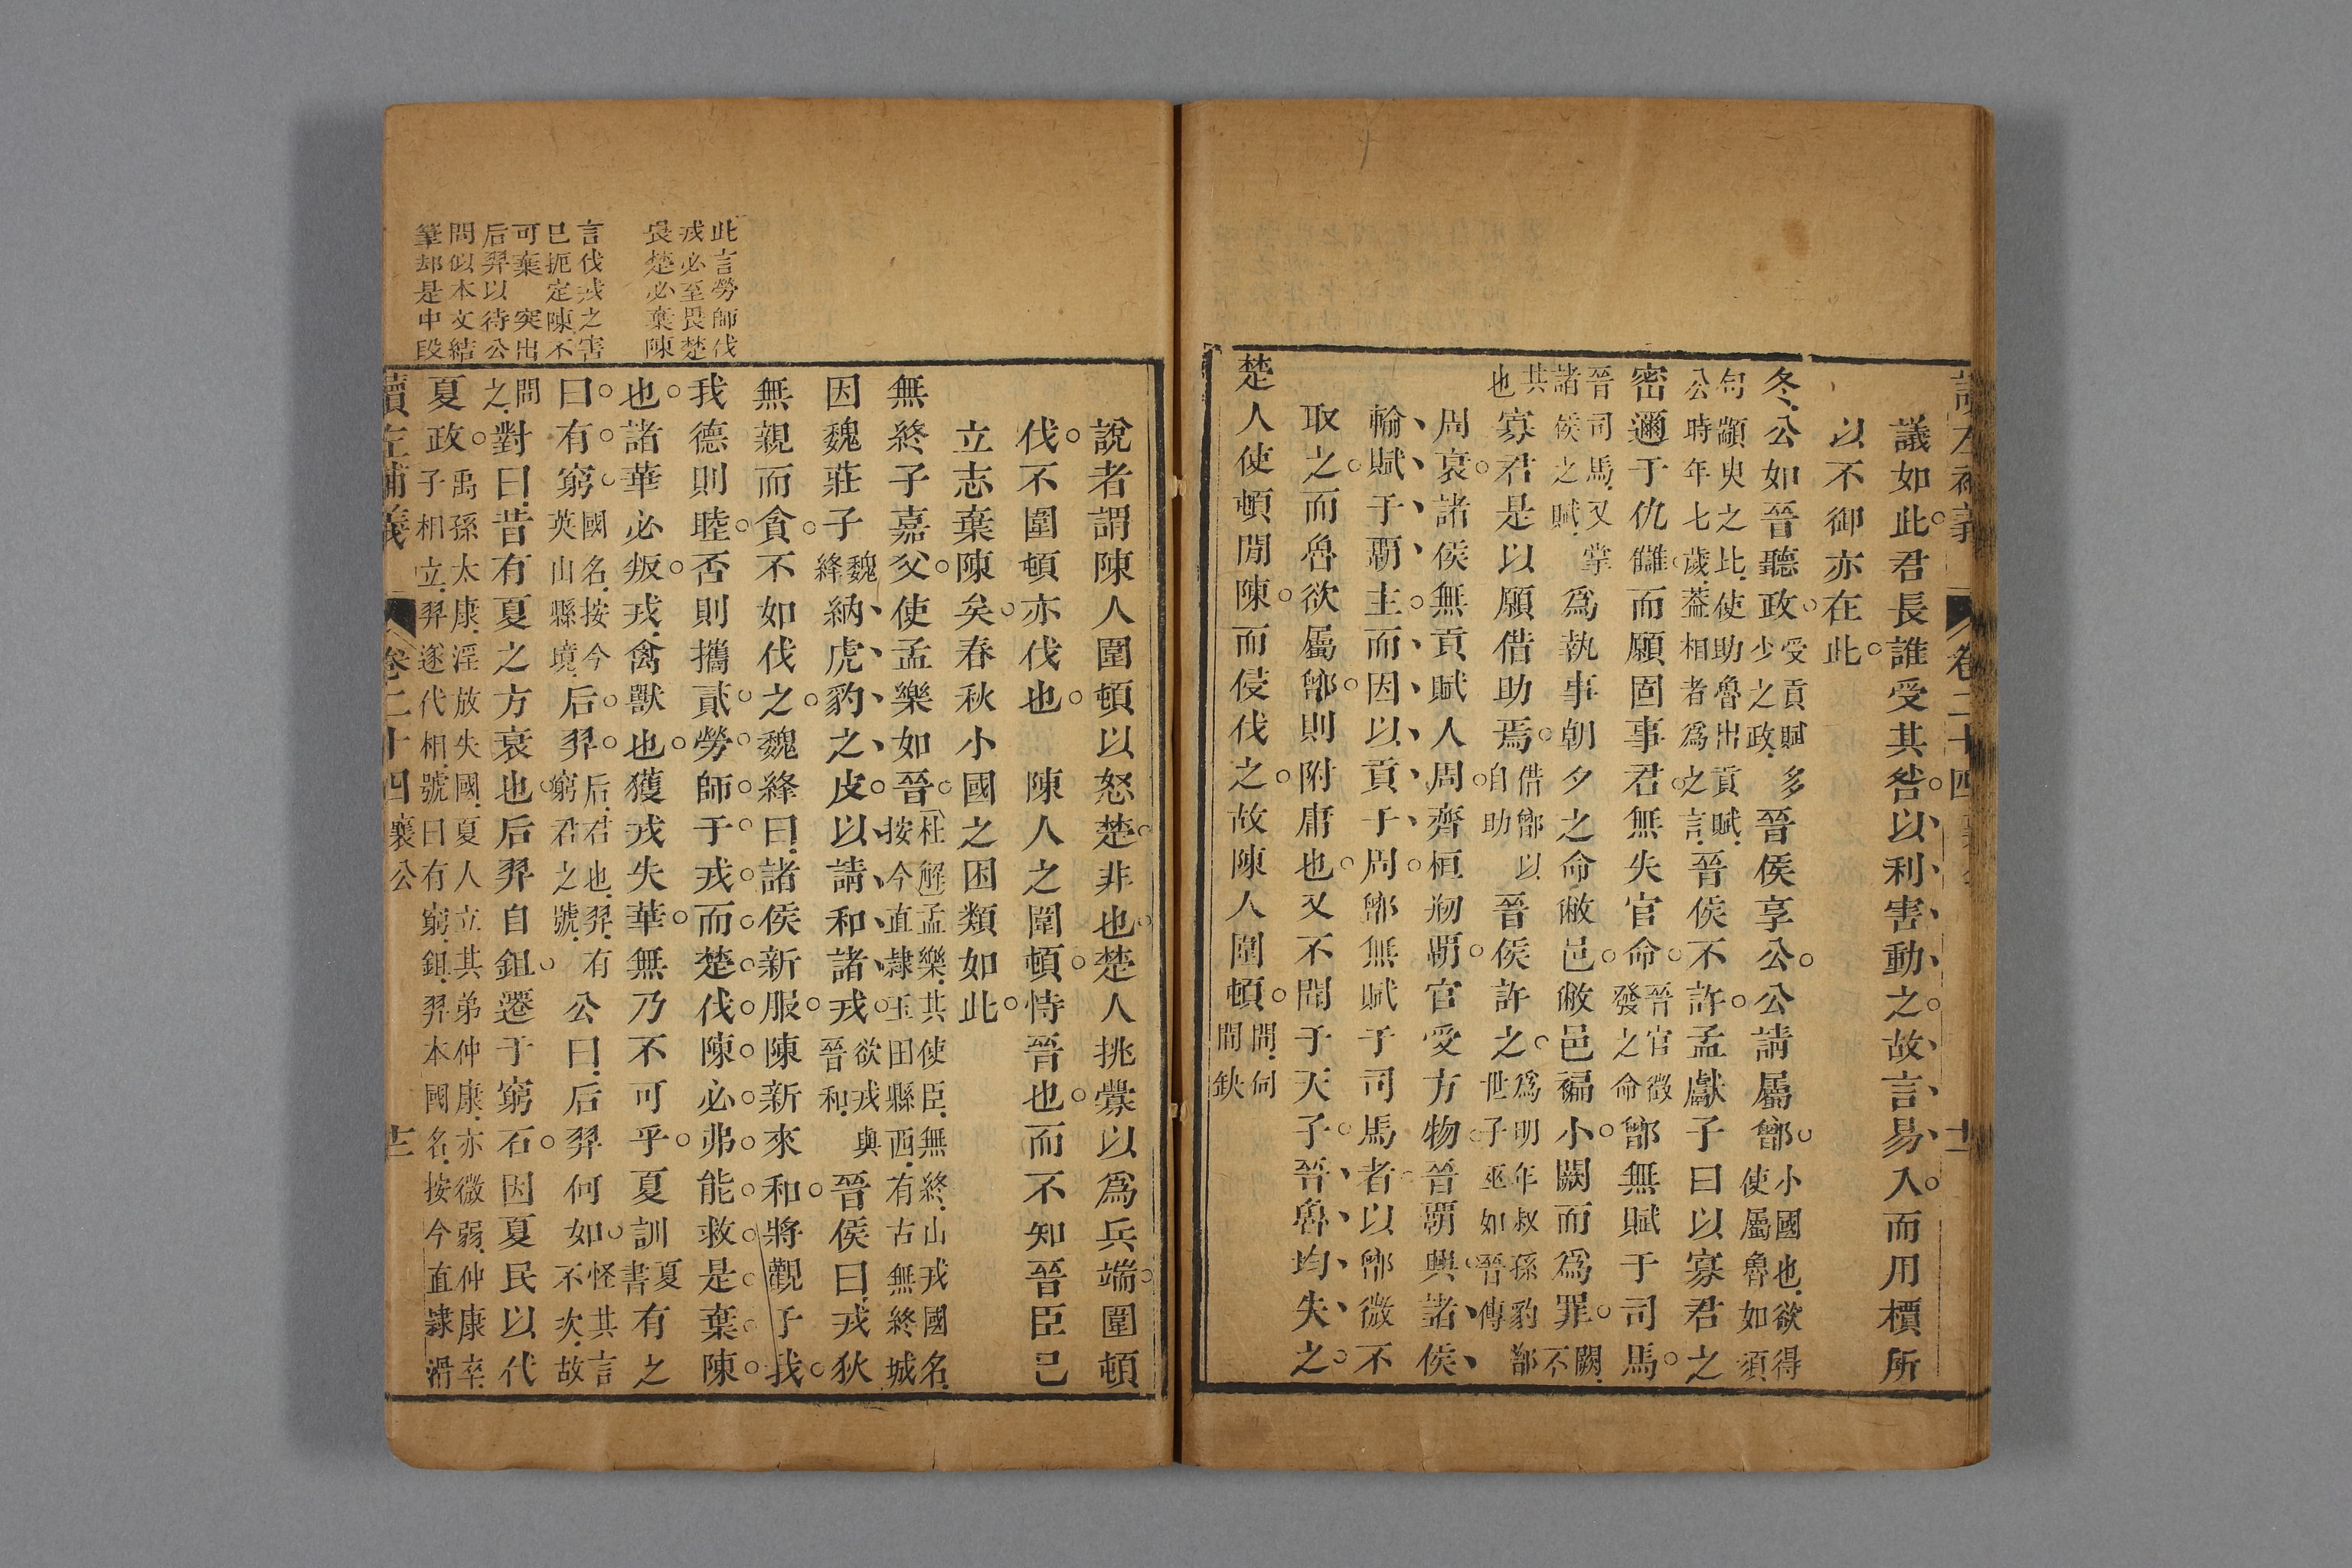 讀左補義 卷二十四 襄公 十二
議如此君長誰受其咎以利害動之故言易入而用櫝所
以不御亦在此
冬公如晉聽政受貢賦多少之政晉侯享公公請屬鄫小國也欲得使屬魯如須
句顓臾之比使助魯出貢賦公時年七歲蓋相者爲之言晉侯不許孟獻子曰以寡君之
密邇于仇讎而願固事君無失官命晉官徵發之命鄫無賦于司馬
晉司馬又掌諸侯之賦爲執事朝夕之命敝邑敝邑褊小闕而爲罪闕不
共也寡君是以願借助焉借鄫以自助晉侯許之爲明年叔孫豹鄫世子巫如晉傳
周衰諸侯無貢賦人周齊桓刱覇官受方物晉覇興諸侯
輸賦于覇主而因以貢于周鄫無賦于司馬者以鄫微不
取之而魯欲屬鄫則附庸也又不聞于天子晉魯均失之
楚人使頓閒陳而侵伐之故陳人圍頓間伺間缺
此言勞師伐
戎必至畏楚
畏楚必棄陳
言伐戎之害
已扼定陳不
可棄 突出
后羿以待公
問似本文結
筆却是中段
說者謂陳人圍頓以怒楚非也楚人挑釁以爲兵端圍頓
伐不圍頓亦伐也 陳人之圍頓恃晉也而不知晉臣已
立志棄陳矣春秋小國之困類如此
無終子嘉父使孟樂如晉杜解孟樂其使臣無終山戎國名按今直隸玉田縣西有古無終城
因魏莊子魏絳納虎豹之皮以請和諸戎欲戎與晉和晉侯曰戎狄
無親而貪不如伐之魏絳曰諸侯新服陳新來和將觀于我
我德則睦否則攜貳勞師于戎而楚伐陳必弗能救是棄陳
也諸華必叛戎禽獸也獲戎失華無乃不可乎夏訓夏書有之
曰有窮國名按今英山縣境后羿后君也羿有窮君之號公曰后羿何如怪其言不次故
問之對曰昔有夏之方衰也后羿自鉏遷于窮石因夏民以代
夏政禹孫太康淫放失國夏人立其弟仲康亦微弱仲康卒子相立羿遂代相號曰有窮鉏羿本國名按今直隸滑
讀左補義 卷二十四 襄公 十三